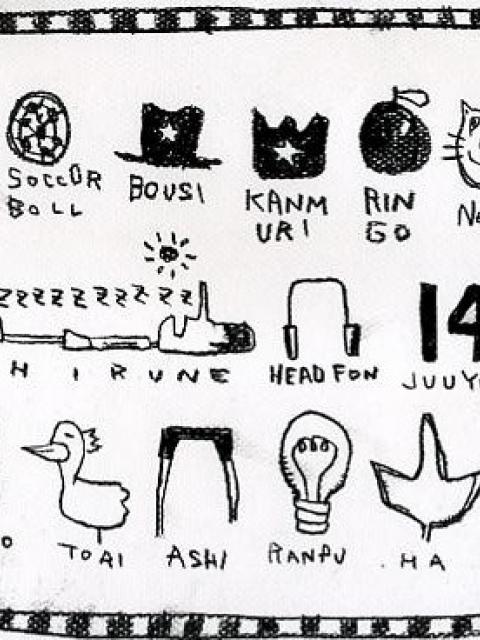 SOCCOR
BOLL
BOUSI
KANM
URI
RIN
GO
ZZZZZZZZZZ
HIRUNE
HEAD FON
14
JUUY
TOAI
ASHI
RANPU
HA